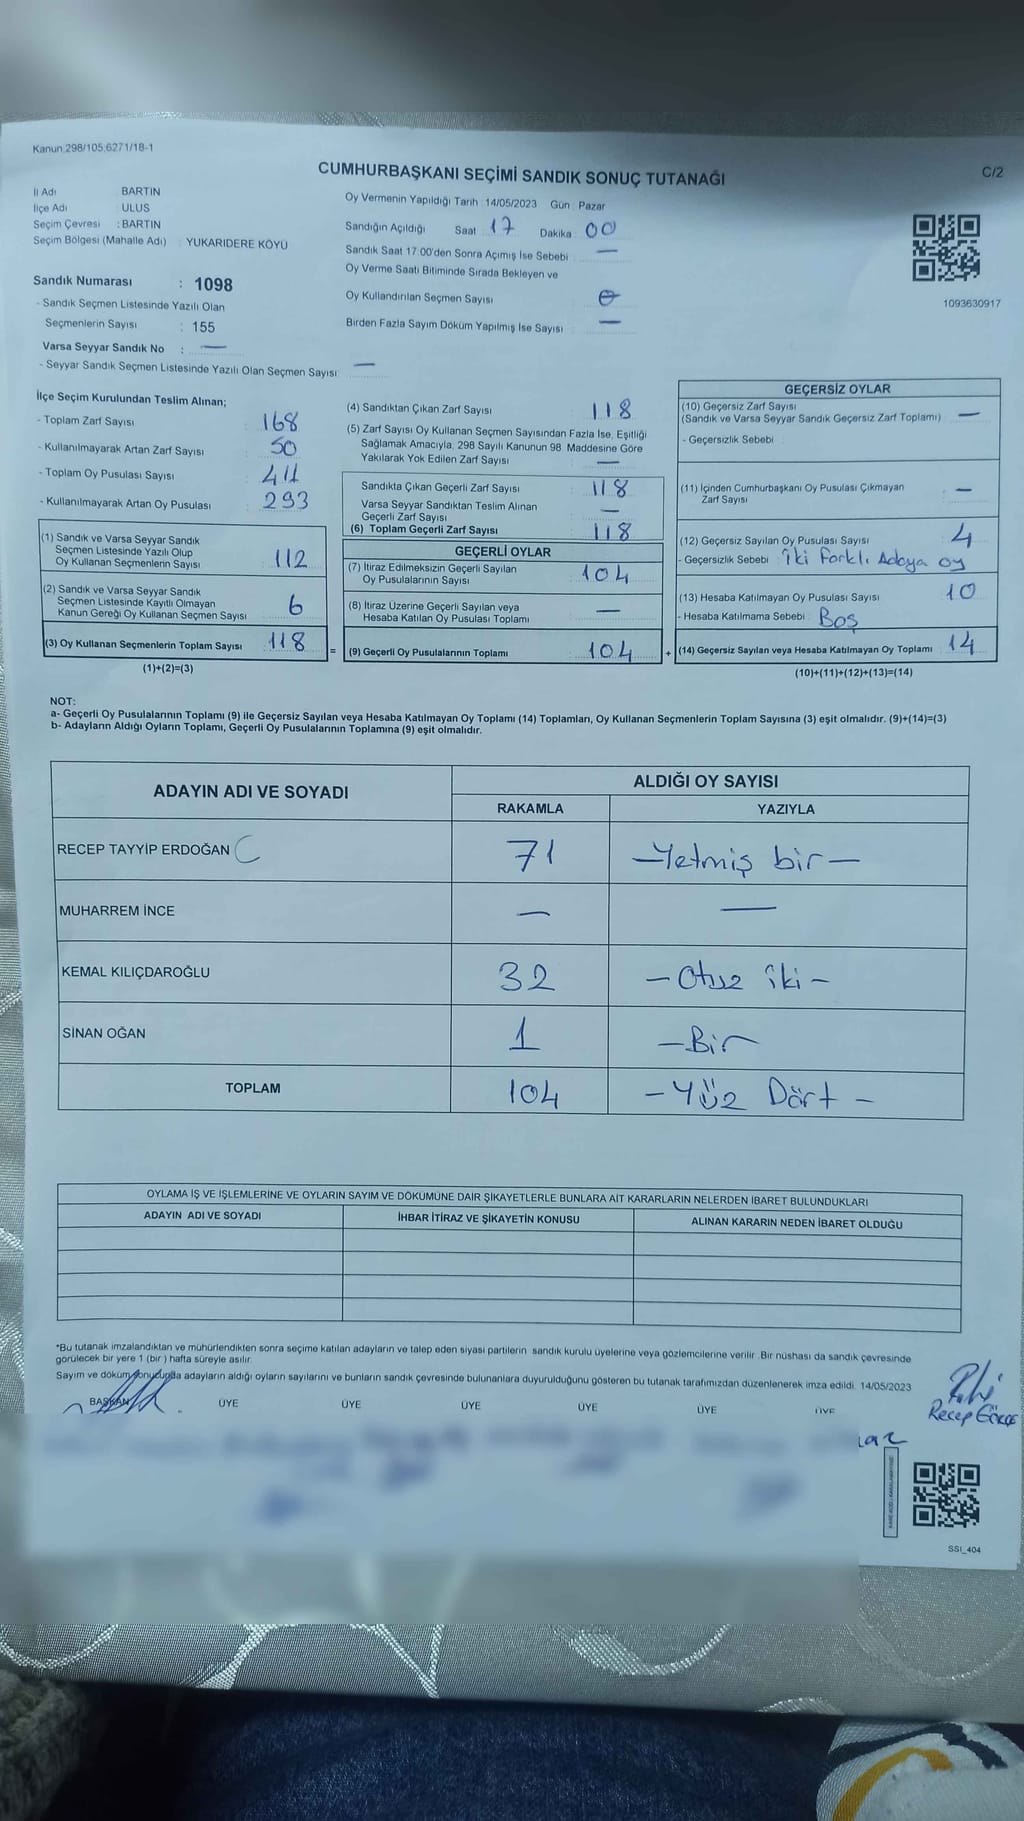 Kanun 298/105,6271/18-1
CUMHURBAŞKANI SEÇİMİ SANDIK SONUÇ TUTANAĞI
C/2
İl Adı BARTIN
İlçe Adı : ULUS
Seçim Çevresi : BARTIN
Seçim Bölgesi (Mahalle Adı) : YUKARIDERE KÖYÜ
Oy Vermenin Yapıldığı Tarih : 14/05/2023 Gün : Pazar
Sandığın Açıldığı Saat 17 Dakika 00
Sandık Saat 17:00'den Sonra Açımış İse Sebebi —
Oy Verme Saati Bitiminde Sırada Bekleyen ve
Oy Kullandırılan Seçmen Sayısı
Birden Fazla Sayım Döküm Yapılmış İse Sayısı —
1093630917
Sandık Numarası : 1098
- Sandık Seçmen Listesinde Yazılı Olan
Seçmenlerin Sayısı : 155
Varsa Seyyar Sandık No : —
- Seyyar Sandık Seçmen Listesinde Yazılı Olan Seçmen Sayısı: —
İlçe Seçim Kurulundan Teslim Alınan;
- Toplam Zarf Sayısı 168
- Kullanılmayarak Artan Zarf Sayısı 50
- Toplam Oy Pusulası Sayısı 411
- Kullanılmayarak Artan Oy Pusulası 293
(1) Sandık ve Varsa Seyyar Sandık
Seçmen Listesinde Yazılı Olup
Oy Kullanan Seçmenlerin Sayısı 112
(2) Sandık ve Varsa Seyyar Sandık
Seçmen Listesinde Kayıtlı Olmayan
Kanun Gereği Oy Kullanan Seçmen Sayısı 6
(3) Oy Kullanan Seçmenlerin Toplam Sayısı 118
(1)+(2)=(3)
=
(4) Sandıktan Çıkan Zarf Sayısı 118
(5) Zarf Sayısı Oy Kullanan Seçmen Sayısından Fazla İse, Eşitliği
Sağlamak Amacıyla, 298 Sayılı Kanunun 98. Maddesine Göre
Yakılarak Yok Edilen Zarf Sayısı —
Sandıkta Çıkan Geçerli Zarf Sayısı 118
Varsa Seyyar Sandıktan Teslim Alınan
Geçerli Zarf Sayısı —
(6) Toplam Geçerli Zarf Sayısı 118
GEÇERLİ OYLAR
(7) İtiraz Edilmeksizin Geçerli Sayılan
Oy Pusulalarının Sayısı 104
(8) İtiraz Üzerine Geçerli Sayılan veya
Hesaba Katılan Oy Pusulası Toplamı —
(9) Geçerli Oy Pusulalarının Toplamı 104
+
GEÇERSİZ OYLAR
(10) Geçersiz Zarf Sayısı
(Sandık ve Varsa Seyyar Sandık Geçersiz Zarf Toplamı) —
- Geçersizlik Sebebi
(11) İçinden Cumhurbaşkanı Oy Pusulası Çıkmayan
Zarf Sayısı —
(12) Geçersiz Sayılan Oy Pusulası Sayısı 4
- Geçersizlik Sebebi : İki Farklı Adaya oy
(13) Hesaba Katılmayan Oy Pusulası Sayısı 10
- Hesaba Katılmama Sebebi : Boş
(14) Geçersiz Sayılan veya Hesaba Katılmayan Oy Toplamı 14
(10)+(11)+(12)+(13)=(14)
NOT:
a- Geçerli Oy Pusulalarının Toplamı (9) ile Geçersiz Sayılan veya Hesaba Katılmayan Oy Toplamı (14) Toplamları, Oy Kullanan Seçmenlerin Toplam Sayısına (3) eşit olmalıdır. (9)+(14)=(3)
b- Adayların Aldığı Oyların Toplamı, Geçerli Oy Pusulalarının Toplamına (9) eşit olmalıdır.
ADAYIN ADI VE SOYADI
ALDIĞI OY SAYISI
RAKAMLA YAZIYLA
RECEP TAYYİP ERDOĞAN 71 —Yetmiş bir—
MUHARREM İNCE — —
KEMAL KILIÇDAROĞLU 32 —Otuz iki—
SİNAN OĞAN 1 —Bir—
TOPLAM 104 —Yüz Dört—
OYLAMA İŞ VE İŞLEMLERİNE VE OYLARIN SAYIM VE DÖKÜMÜNE DAİR ŞİKAYETLERLE BUNLARA AİT KARARLARIN NELERDEN İBARET BULUNDUKLARI
ADAYIN ADI VE SOYADI İHBAR İTİRAZ VE ŞİKAYETİN KONUSU ALINAN KARARIN NEDEN İBARET OLDUĞU
*Bu tutanak imzalandıktan ve mühürlendikten sonra seçime katılan adayların ve talep eden siyasi partilerin sandık kurulu üyelerine veya gözlemcilerine verilir. Bir nüshası da sandık çevresinde
görülecek bir yere 1 (bir ) hafta süreyle asılır.
Sayım ve döküm sonucunda adayların aldığı oyların sayılarını ve bunların sandık çevresinde bulunanlara duyurulduğunu gösteren bu tutanak tarafımızdan düzenlenerek imza edildi. 14/05/2023
BAŞKAN ÜYE ÜYE ÜYE ÜYE ÜYE ÜYE
Recep
SSI_404